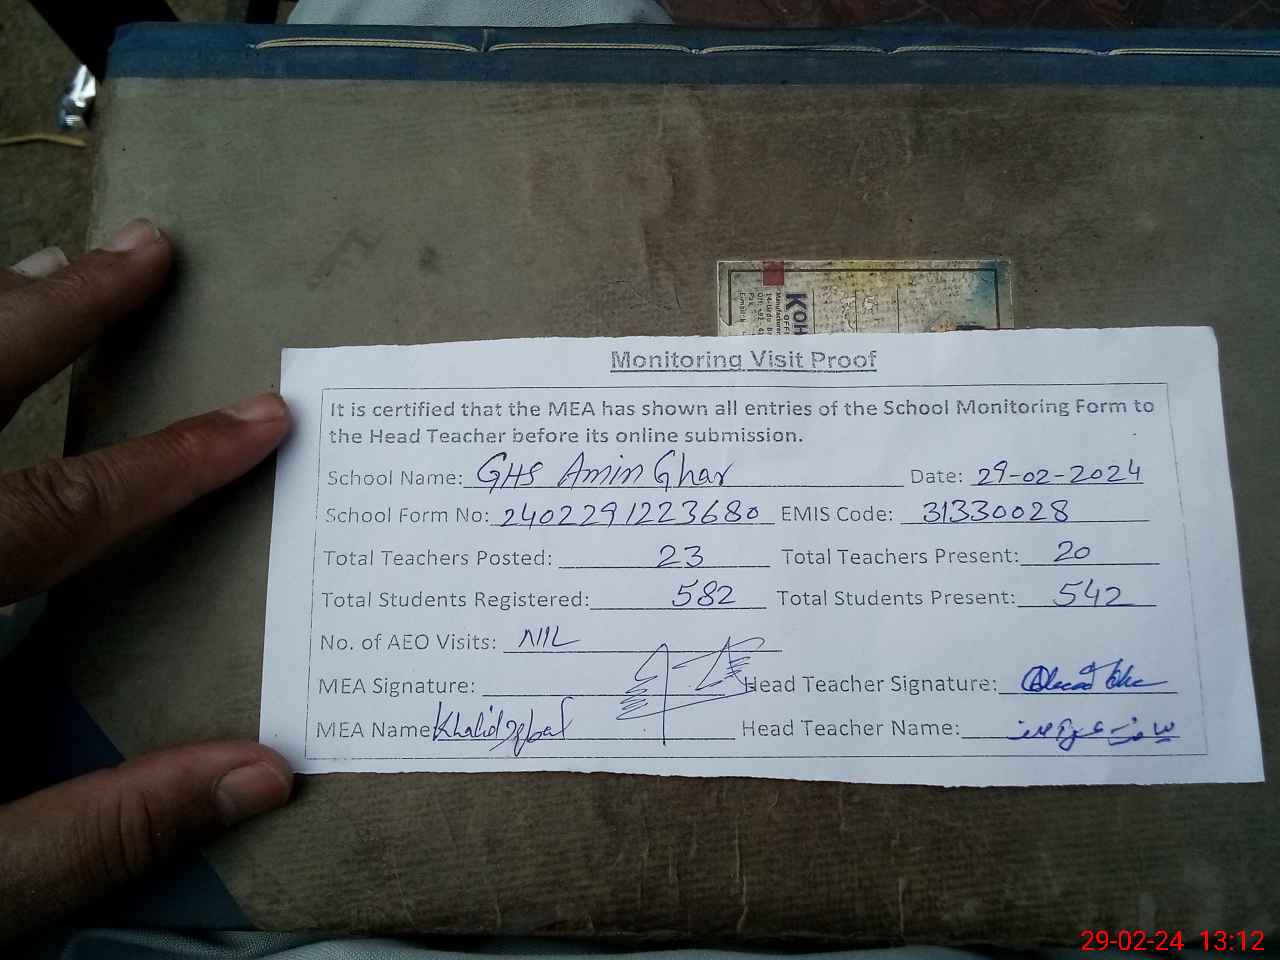 KOH
Monitoring Visit Proof
It is certified that the MEA has shown all entries of the School Monitoring Form to
the Head Teacher before its online submission.
School Name: GHS Amin Ghar Date: 29-02-2024
School Form No: 2402291223680 EMIS Code: 31330028
Total Teachers Posted: 23 Total Teachers Present: 20
Total Students Registered: 582 Total Students Present: 542
No. of AEO Visits: NIL
MEA Signature: Head Teacher Signature:
MEA Name Khalid Iqbal Head Teacher Name:
29-02-24 13:12